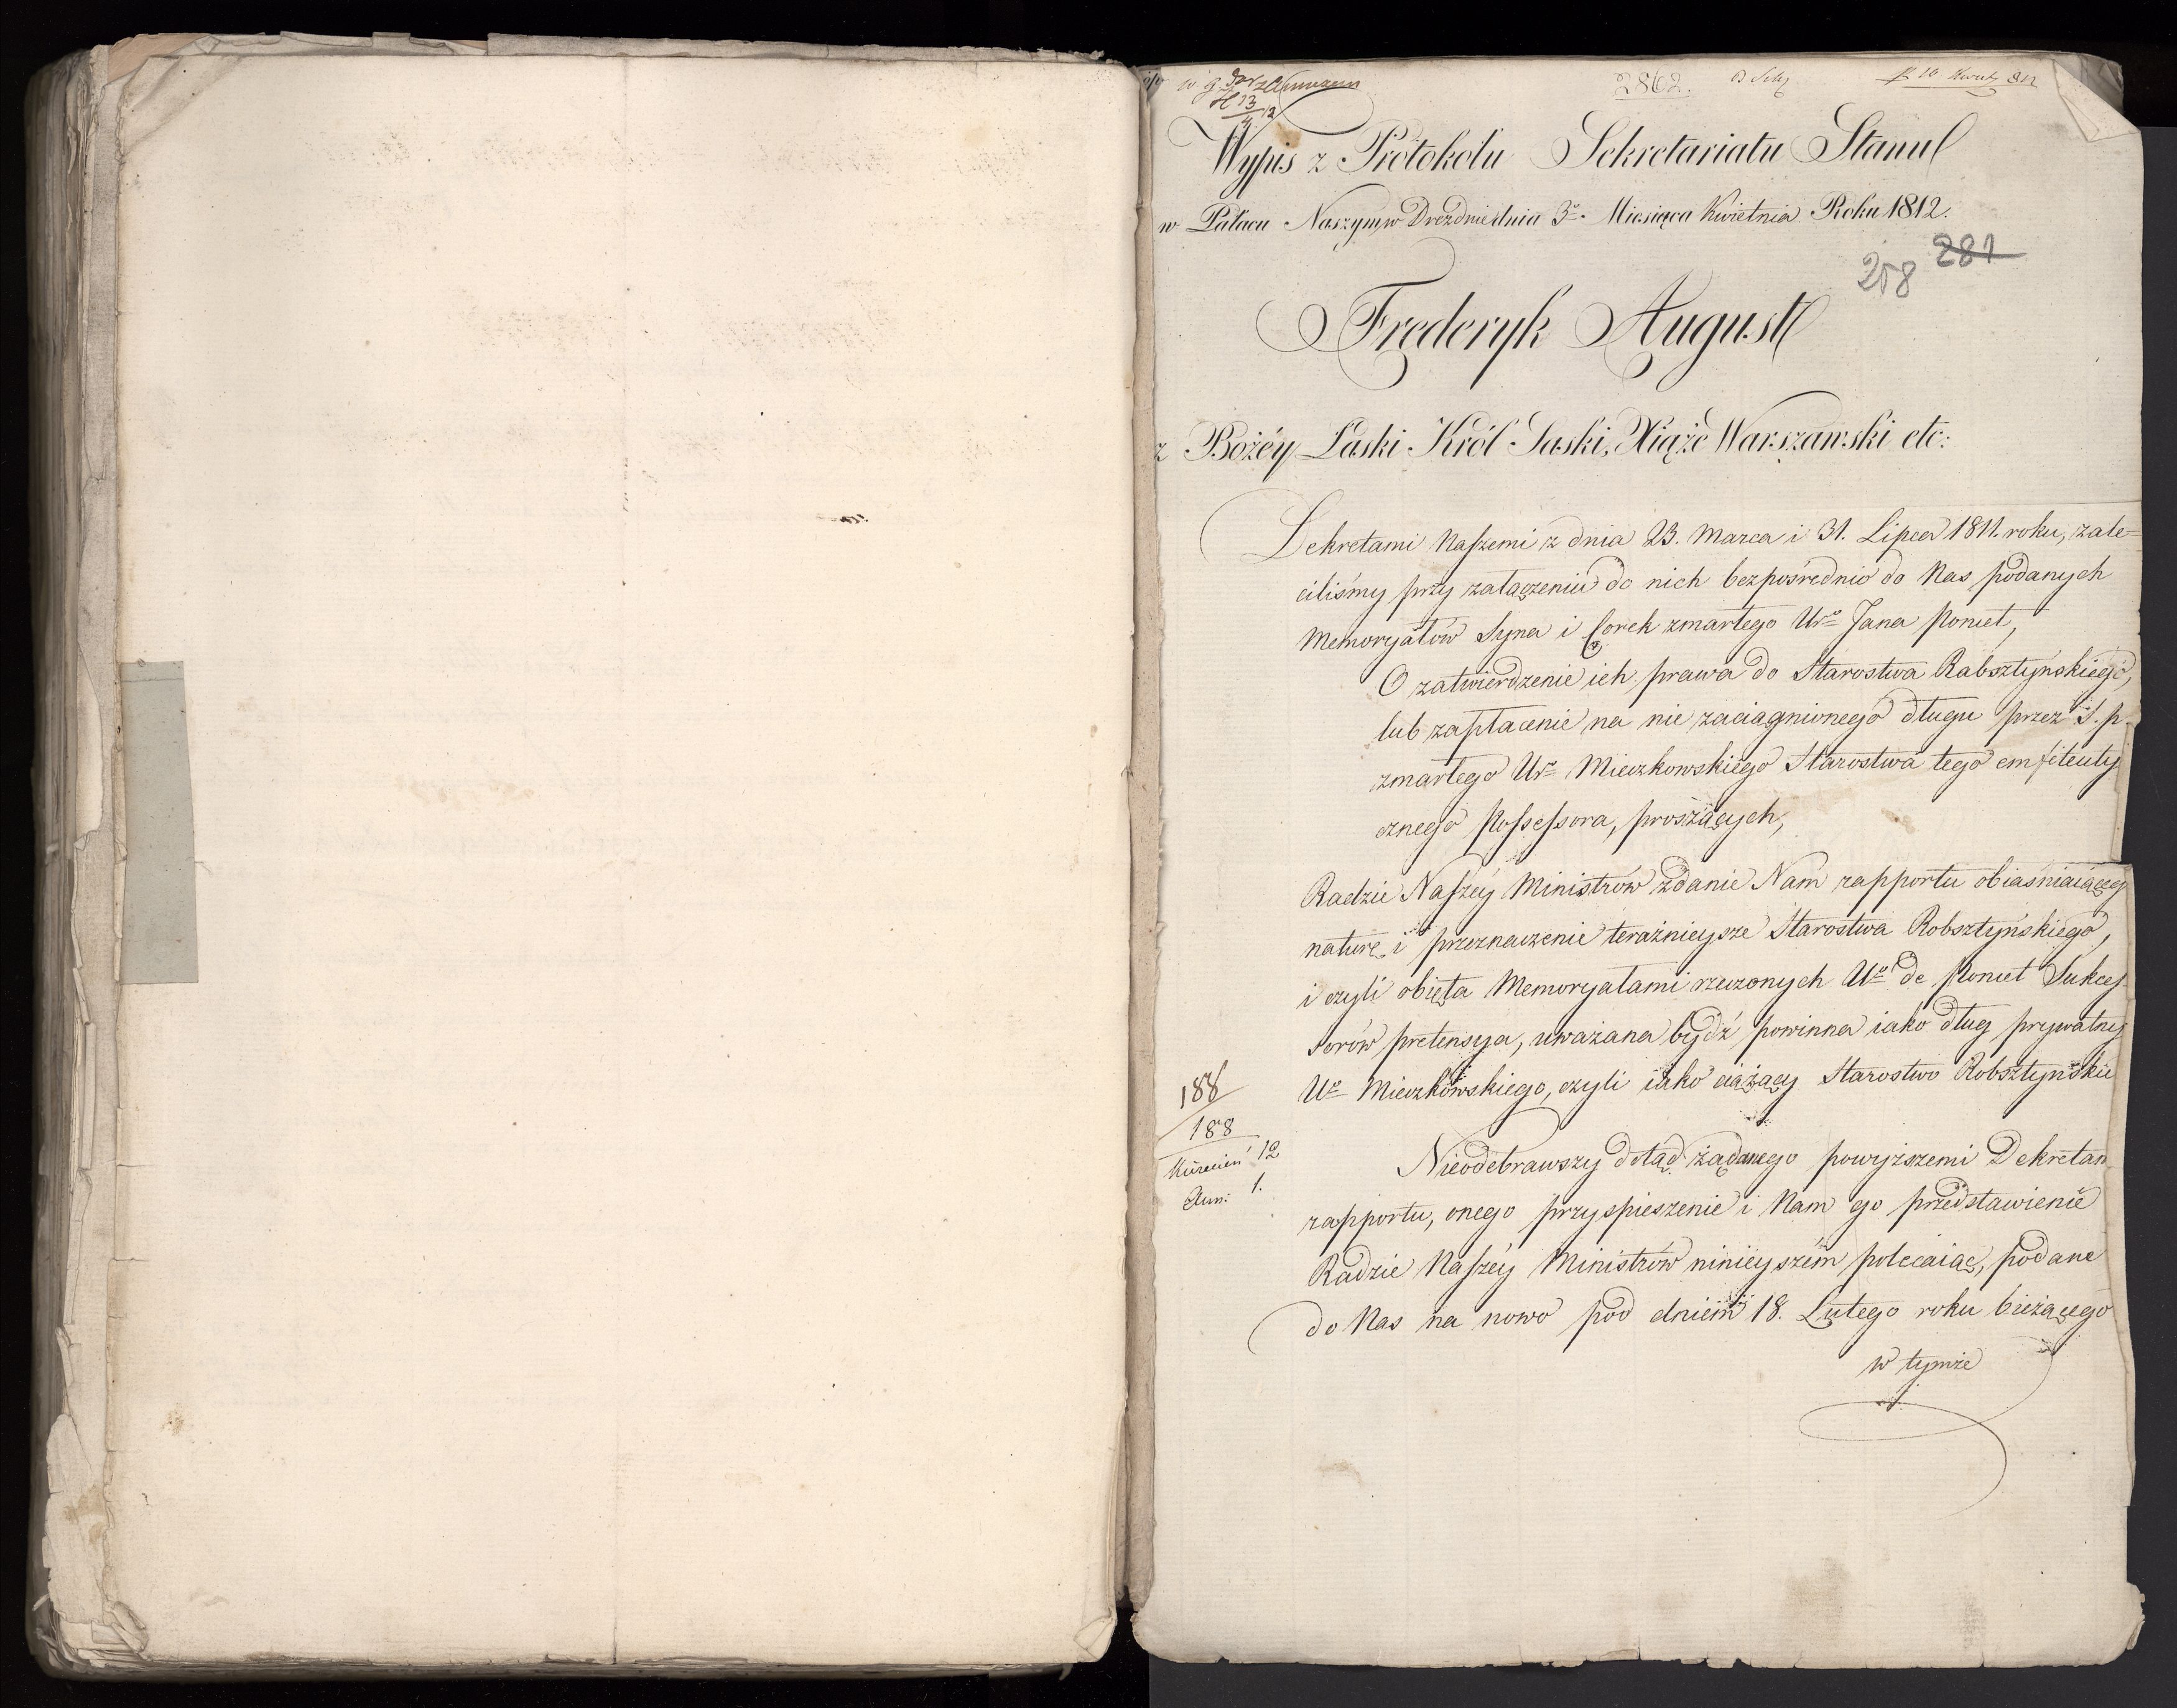 2862.
Wypis z Protokołu Sekretariatu Stanu
w Pałacu Naszym w Dreźdnie dnia 3º Miesiąca Kwietnia Roku 1812.
281
258
Frederyk August
z Bożéy Łaski Król Saski, Xiąże Warszawski etc:
Dekretami Naszemi z dnia 23. Marca i 31. Lipca 1811. roku, zale=
ciliśmy przy załączeniu do nich bezpośrednio do Nas podanych
Memoryałów Syna i Corek zmarłego Urº Jana Poniet,
O zatwierdzenie ich prawa do Starostwa Rabsztyńskiego,
lub zapłacenie na nie zaciągnionego długu przez Ś. p.
zmarłego Urº Mieczkowskiego Starostwa tego emfiteuty
cznego Possessora, proszących,
Radzie Naszéy Ministrów zdanie Nam rapportu obiasniaiącego
naturę i przeznaczenie teraźnieysze Starostwa Robsztyńskiego,
i czyli obięta Memoryałami rzeczonych Urº de Poniet Sukces
sorów pretensya, uważana bydź powinna iako dług prywatny
Urº Mieczkowskiego, czyli iako ciążący Starostwo Robsztyńskie
188
188
Kwiecień 12
1.
Nieodebrawszy dotąd żądanego powyższemi Dekretam
rapportu, onego przyspieszenie i Nam go przedstawienie
Radzie Naszéy Ministrów ninieyszém polecaiąc, podane
do Nas na nowo pod dniem 18. Lutego roku bieżącego
w tymże